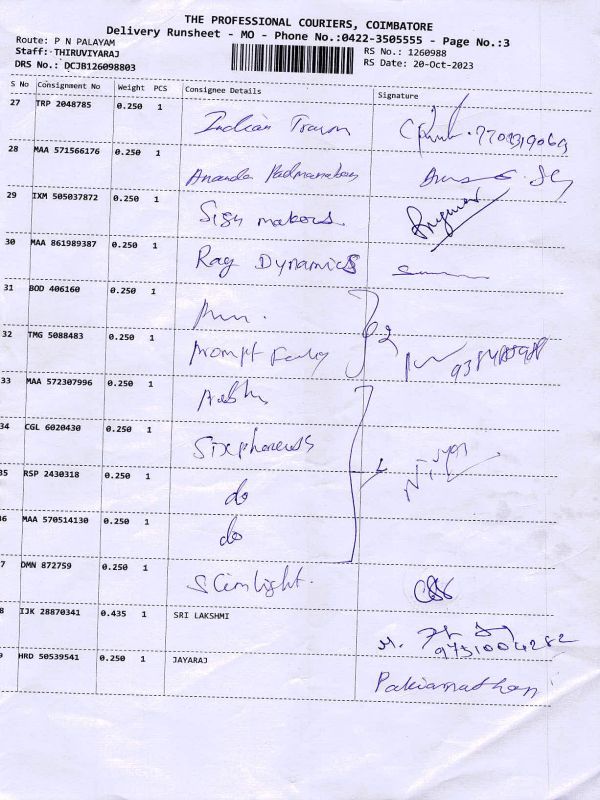 THE PROFESSIONAL COURIERS, COIMBATORE
Delivery Runsheet - MO - Phone No.:0422-3505555 - Page No.:3
Route: P N PALAYAM
RS No.: 1260988
Staff: THIRUVIYARAJ
RS Date: 20-Oct-2023
DRS No.: DCJB126098803
S No Consignment No Weight PCS Consignee Details Signature
27 TRP 2048785 0.250 1 Indian
28 MAA 571566176 0.250 1 Ananda Padmanaban
29 IXM 505037872 0.250 1 Sign makers
30 MAA 861989387 0.250 1 Ray Dynamics
31 BOD 406160 0.250 1
32 TMG 5088483 0.250 1 Prompt
33 MAA 572307996 0.250 1
34 CGL 6020430 0.250 1
35 RSP 2430318 0.250 1 do
36 MAA 570514130 0.250 1 do
7 DMN 872759 0.250 1 Slimlight.
8 IJK 28870341 0.435 1 SRI LAKSHMI 9751004282
9 HRD 50539541 0.250 1 JAYARAJ Pakianathan